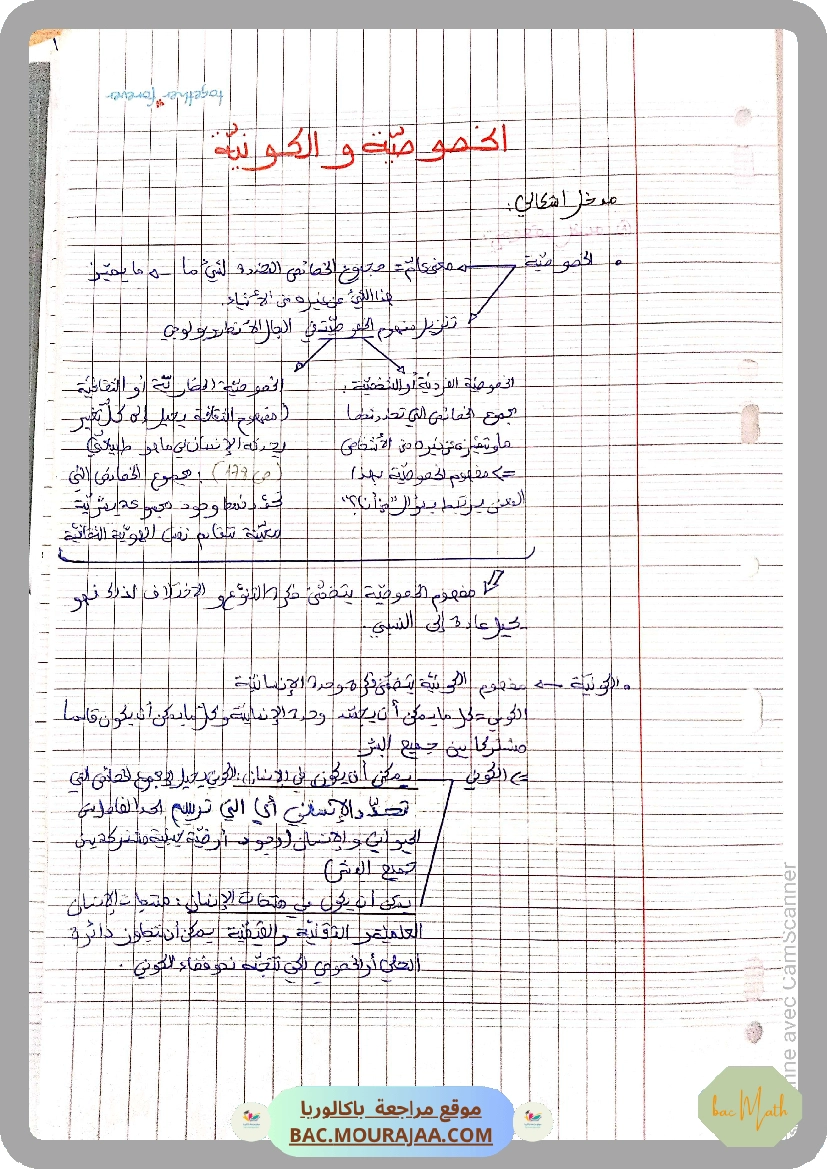 ١
together forever
الخصوصيّة و الكونيّة
مدخل اشكالي:
• الخصوصيّة ← معنى عامّ = مجموع الخصائص المحددة لشيء ما ← ما يميّز
هذا الشيء عن غيره من الأشياء.
تنزيل مفهوم الخصوصيّة في المجال الأنتروبولوجي
الخصوصيّة الفرديّة أو الشخصيّة:
مجموع الخصائص التي تحدد نمط
ما وتميّزه عن غيره من الأشخاص
=> مفهوم الخصوصيّة بهذا
المعنى يرتبط بسؤال "من أنا؟"
الخصوصيّة الحضاريّة أو الثقافيّة
(مفهوم الثقافة يحيل إلى كلّ تغيير
يحدثه الإنسان في ما هو طبيعيّ
(ص 177): مجموع الخصائص التي
تحدّد نمط وجود مجموعة بشريّة
معيّنة تتقاسم نفس الهويّة الثقافيّة
مفهوم الخصوصيّة يتضمّن فكرة التنوّع و الاختلاف لذلك فهو
يحيل عادة إلى النسبي.
• الكونيّة ← مفهوم الكونيّة يتضمّن فكرة وحدة الإنسانيّة
الكوني = كل ما يمكن أن يجسّد وحدة الإنسانيّة و كلّ ما يمكن أن يكون قاسما
مشتركا بين جميع البشر
=> الكوني
يمكن أن يكون في الإنسان: الكوني يحيل لمجموع الخصائص التي
تحدّد الإنساني أي التي ترسم الحد الفاصل بين
الحيواني و الإنسان (وجود أرضيّة مشتركة بين
جميع البشر)
يمكن أن يكون في منتجات الإنسان: منتجات الإنسان
العلميّة و التقنيّة و القيميّة يمكن أن تتجاوز دائرة
المحلي أو الخصوصي لكي تتجّه نحو فضاء الكوني.
nne avec CamScanner
موقع مراجعة باكالوريا
BAC.MOURAJAA.COM
bac Math